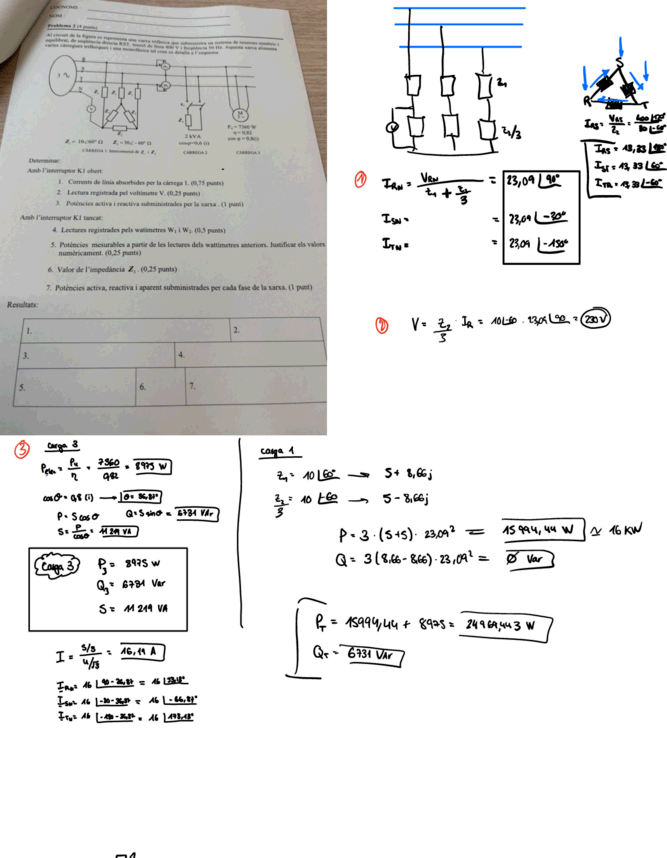 COGNOMS:
NOM:
Problema 2 (4 punts)
Al circuit de la figura es representa una xarxa trifàsica que subministra un sistema de tensions simètric i
equilibrat, de seqüència directa RST, tensió de línia 400 V i freqüència 50 Hz. Aquesta xarxa alimenta
vàries càrregues trifàsiques i una monofàsica tal com es detalla a l'esquema.
3 ~
Z₁ = 10∠60° Ω Z₂ = 30∠-60° Ω
2 kVA
cosφ=0,6 (i)
Pₙ = 7360 W
η = 0,82
cos φ = 0,8(i)
CÀRREGA 2
CÀRREGA 3
Determinar:
Amb l'interruptor K1 obert:
1. Corrents de línia absorbides per la càrrega 1. (0,75 punts)
2. Lectura registrada pel voltímetre V. (0,25 punts)
3. Potències activa i reactiva subministrades per la xarxa . (1 punt)
Amb l'interruptor K1 tancat:
4. Lectures registrades pels watímetres W₁ i W₂. (0,5 punts)
5. Potències mesurables a partir de les lectures dels wattímetres anteriors. Justificar els valors
numèricament. (0,25 punts)
6. Valor de l'impedància Z₁ . (0,25 punts)
7. Potències activa, reactiva i aparent subministrades per cada fase de la xarxa. (1 punt)
Resultats:
1. 2.
3. 4.
5. 6. 7.
Z₁
Z₂/3
V
S
R T
I_RS = V_RS / Z₂ = 400∠120° / 30∠-60°
I_RS = 13,33∠180°
I_ST = 13,33∠60°
I_TR = 13,33∠-60°
① I_RN = V_RN / (Z₁ + Z₂/3) = 23,09∠90°
I_SN = = 23,09∠-30°
I_TN = = 23,09∠-150°
② V = Z₂/3 · I_R = 10∠-60 · 23,09∠90 = 230 V
③ Carga 3
P_elec = Pu/η = 7360/0,82 = 8975 W
cosθ = 0,8 (i) → θ = 36,87°
P = S cosθ Q = S sinθ = 6731 VAr
S = P/cosθ = 11219 VA
Carga 3
P₃ = 8975 W
Q₃ = 6731 Var
S = 11219 VA
I = S/3 / U/√3 = 16,19 A
I_RN = 16∠90-36,87 = 16∠53,13°
I_SN = 16∠-30-36,87 = 16∠-66,87°
I_TN = 16∠-150-36,87 = 16∠173,13°
carga 1
Z₁ = 10∠60° → 5+8,66j
Z₂/3 = 10∠-60 → 5-8,66j
P = 3·(5+5)·23,09² = 15994,44 W ≃ 16 KW
Q = 3(8,66-8,66)·23,09² = Ø Var
P_T = 15994,44 + 8975 = 24969,443 W
Q_T = 6731 VAr